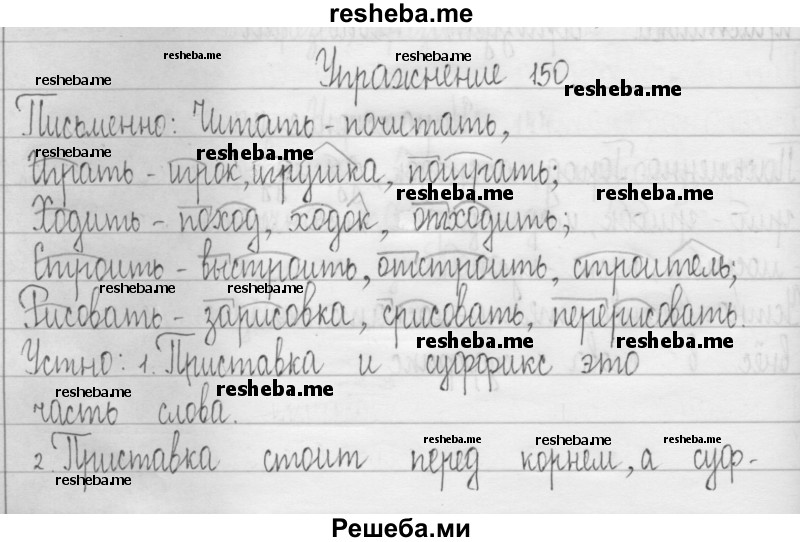 resheba.me
resheba.me resheba.me
Упражнение 150
resheba.me resheba.me
Письменно: Читать - почитать,
resheba.me resheba.me
Играть - игрок, игрушка, поиграть;
resheba.me resheba.me
Ходить - поход, ходок, отходить;
Строить - выстроить, отстроить, строитель;
resheba.me resheba.me resheba.me
Рисовать - зарисовка, срисовать, перерисовать.
resheba.me resheba.me
Устно: 1. Приставка и суффикс это
resheba.me resheba.me
часть слова.
resheba.me resheba.me resheba.me
2. Приставка стоит перед корнем, а суф-
resheba.me
Решеба.ми